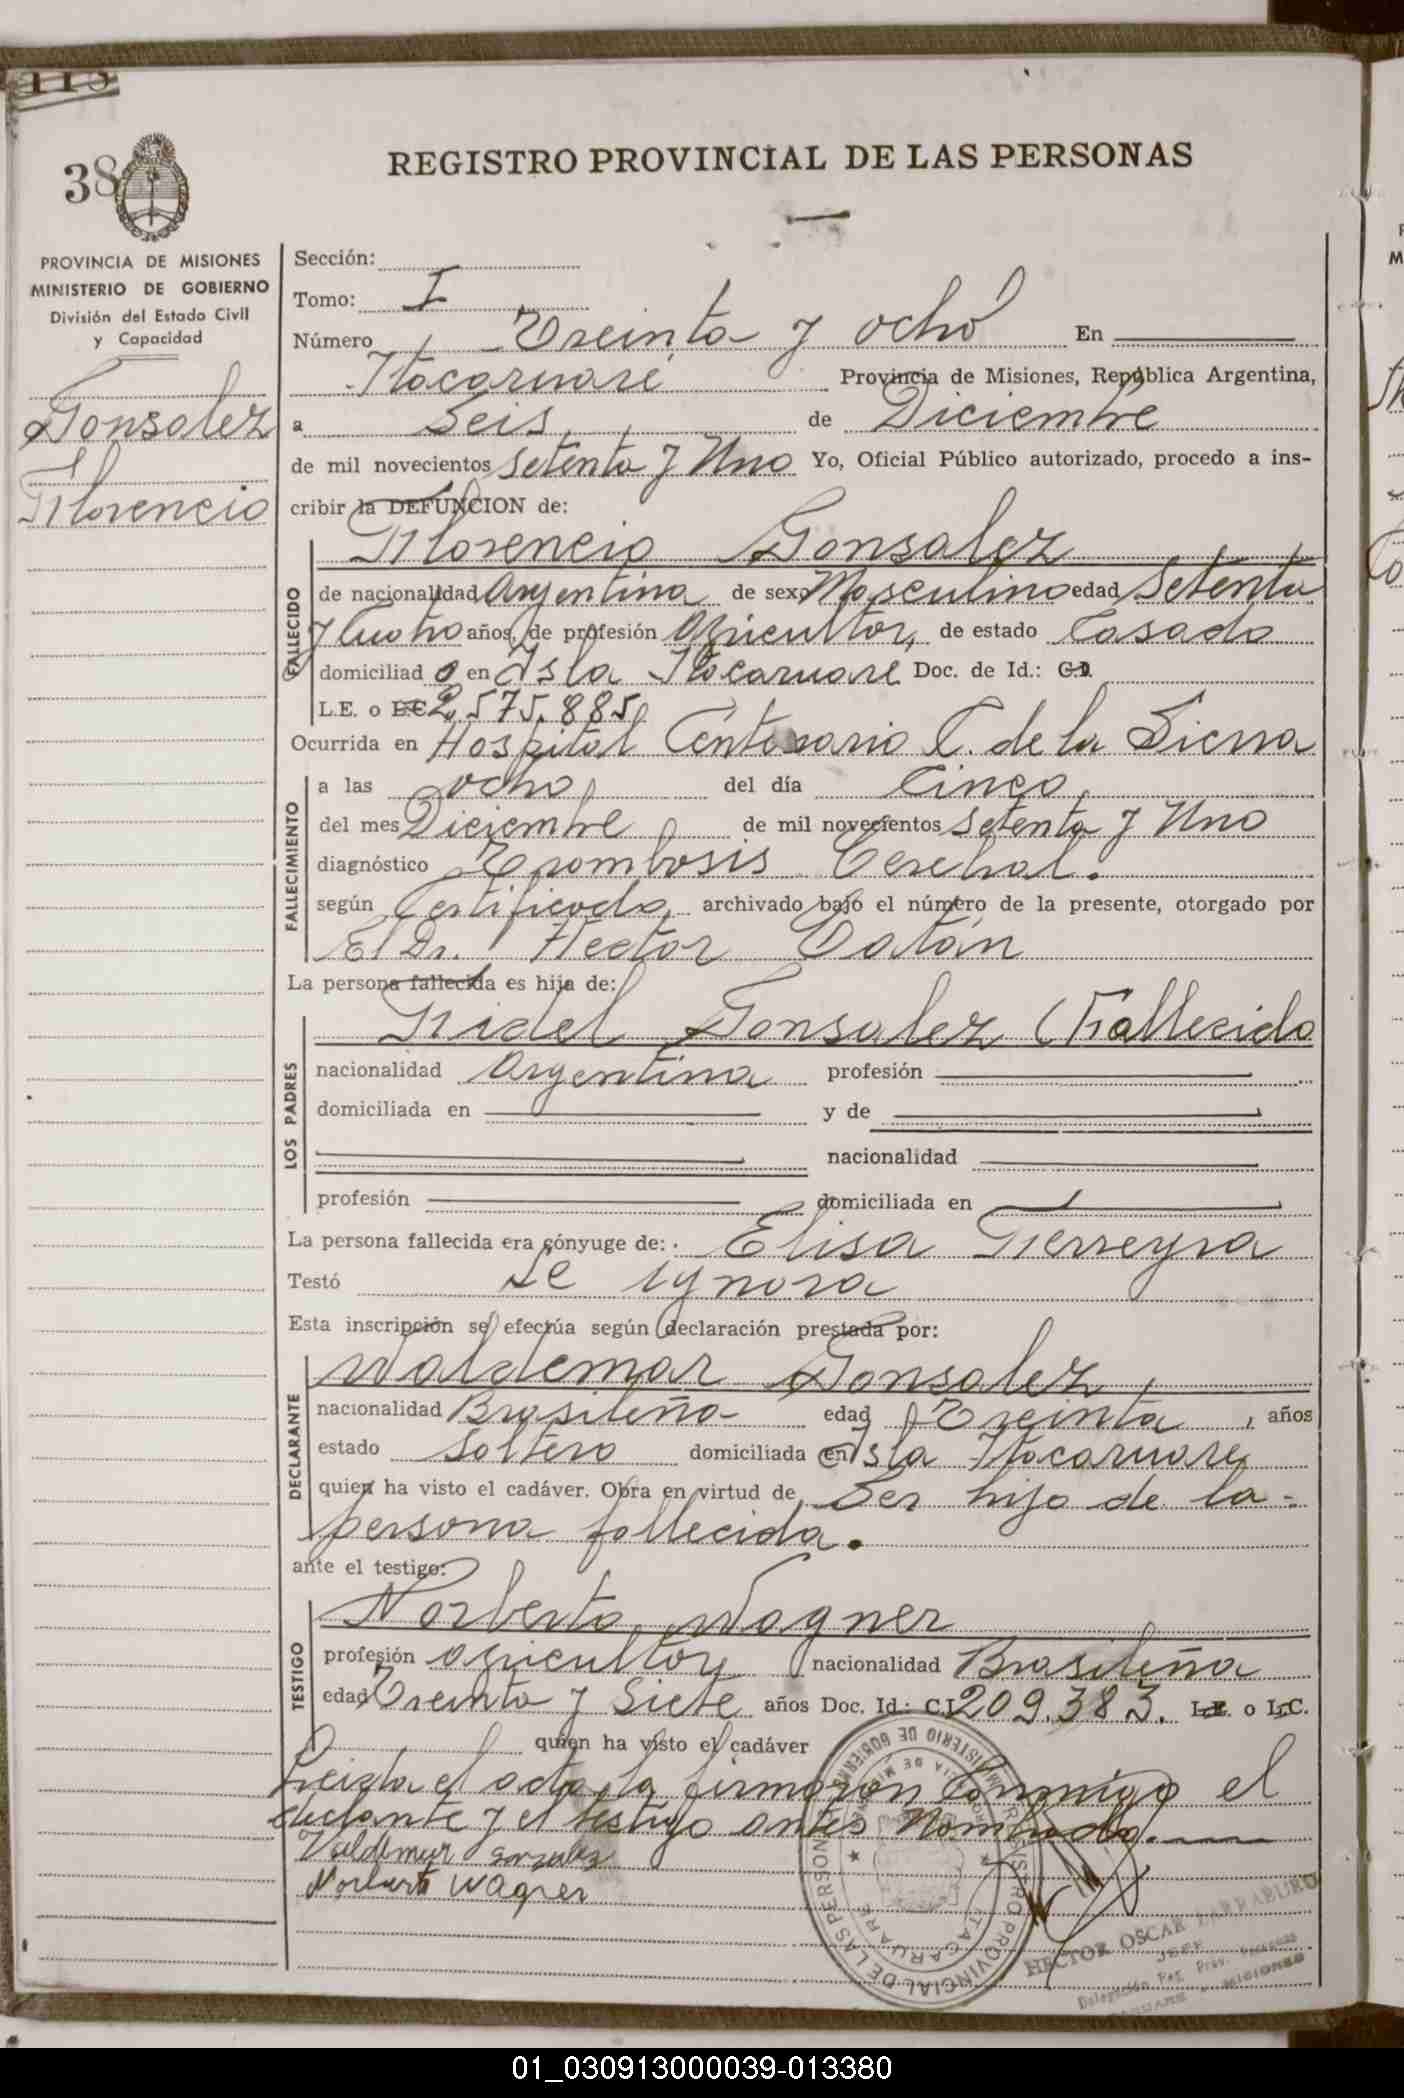 113
38
REGISTRO PROVINCIAL DE LAS PERSONAS
PROVINCIA DE MISIONES
MINISTERIO DE GOBIERNO
División del Estado Civil
y Capacidad
Gonsalez
Florencio
Sección:
Tomo: I
Número Treinta y ocho En
Itacaruaré Provincia de Misiones, República Argentina,
a Seis, de Diciembre
de mil novecientos setenta y Uno Yo, Oficial Público autorizado, procedo a ins-
cribir la DEFUNCION de:
Florencio Gonsalez
FALLECIDO
de nacionalidad Argentina de sexo Masculino edad Setenta
y Cuatro años, de profesión Agricultor, de estado Casado
domiciliad o en Isla Itacaruare Doc. de Id.: C.I.
L.E. o L.C. 2.575.885
Ocurrida en Hospital Centenario C. de la Sierra
FALLECIMIENTO
a las ocho, del día Cinco,
del mes Diciembre de mil novecientos setenta y Uno
diagnóstico Trombosis Cerebral.
según Certificado, archivado bajo el número de la presente, otorgado por
El Dr. Hector Catán
La persona fallecida es hija de:
LOS PADRES
Fidel Gonsalez (Fallecido
nacionalidad Argentina profesión
domiciliada en y de
nacionalidad
profesión domiciliada en
La persona fallecida era cónyuge de: Elisa Ferreyra
Testó se ignora
Esta inscripción se efectúa según declaración prestada por:
DECLARANTE
Waldemar Gonsalez,
nacionalidad Brasileña edad Treinta, años
estado Soltero domiciliada en Isla Itacaruare
quien ha visto el cadáver. Obra en virtud de Ser hijo de la-
persona fallecida.
ante el testigo:
TESTIGO
Norberto Wagner
profesión agricultor nacionalidad Brasileña
edad Treinta y Siete años Doc. Id.: C.I. 209.383. L.E. o L.C.
quien ha visto el cadáver
Leida el acta, la firmaron Conmigo el
declante y el testigo antes Nombrado.
Valdemar gonzalez
Norberto Wagner
MINISTERIO DE GOBIERNO
REGISTRO PROVINCIAL DE LAS PERSONAS
ITACARUARE
HECTOR OSCAR LARRABURO
JEFE
Delegación Reg. Prov. Personas
MISIONES
01_030913000039-013380